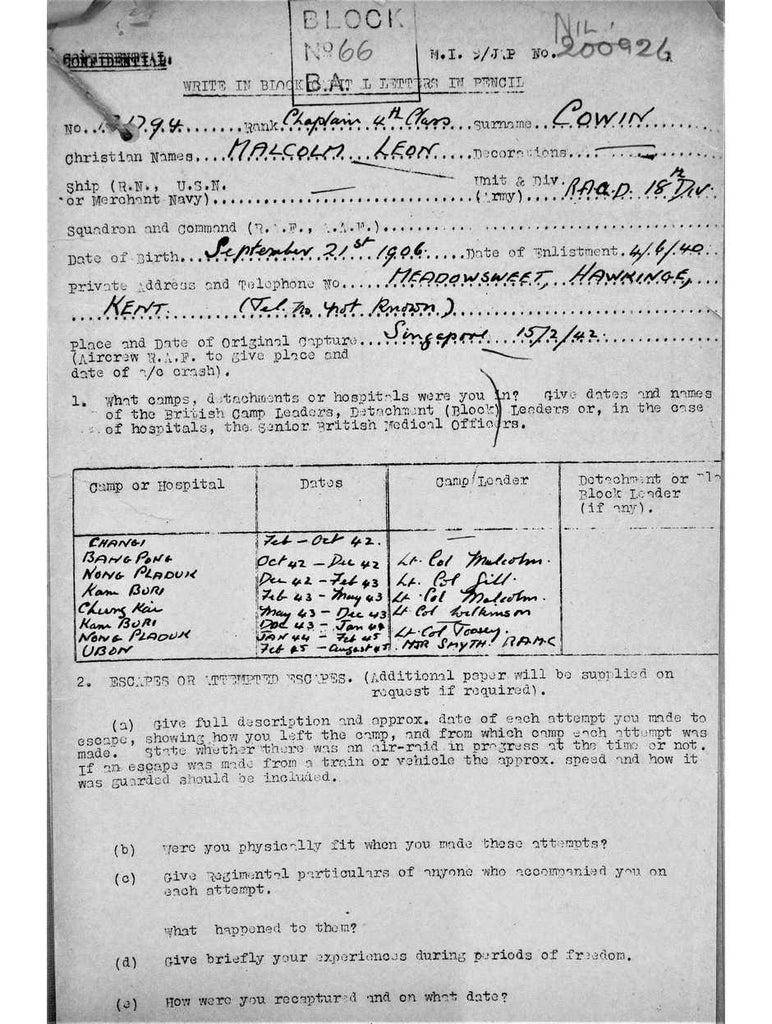 BLOCK
Nº 66
B.A.
NIL.
CONFIDENTIAL.
M.I. 9/JAP No. 200926
WRITE IN BLOCK CAPITAL LETTERS IN PENCIL
No. Rank Chaplain 4th Class Surname COWIN
Christian Names MALCOLM LEON Decorations —
Ship (R.N., U.S.N. — Unit & Div.
or Merchant Navy) (Army) 18th Div.
Squadron and Command (R.A.F., A.A.F.)
Date of Birth September 21st 1906 Date of Enlistment 4/6/40
Private Address and Telephone No. MEADOWSWEET, HAWKINGE,
KENT. (Tel. No. not known.)
Place and Date of Original Capture Singapore 15/2/42.
(Aircrew R.A.F. to give place and
date of a/c crash).
1. What camps, detachments or hospitals were you in? Give dates and names
of the British Camp Leaders, Detachment (Block) Leaders or, in the case
of hospitals, the Senior British Medical Officers.
Camp or Hospital Dates Camp Leader Detachment or
Block Leader
(if any).
CHANGI Feb – Oct 42. —
BANGPONG Oct 42 – Dec 42 Lt. Col Malcolm.
NONG PLADUK Dec 42 – Feb 43 Lt. Col Gill.
Kam BURI Feb 43 – May 43 Lt. Col Malcolm.
Chung Kai May 43 – Dec 43 Lt Col Wilkinson
Kam BURI Dec 43 – Jan 44
NONG PLADUK JAN 44 – Feb 45 Lt Col Toosey.
UBON Feb 45 – August 45. MJR SMYTH. RAMC
2. ESCAPES OR ATTEMPTED ESCAPES. (Additional paper will be supplied on
request if required).
(a) Give full description and approx. date of each attempt you made to
escape, showing how you left the camp, and from which camp each attempt was
made. State whether there was an air-raid in progress at the time or not.
If an escape was made from a train or vehicle the approx. speed and how it
was guarded should be included.
(b) Were you physically fit when you made these attempts?
(c) Give Regimental particulars of anyone who accompanied you on
each attempt.
What happened to them?
(d) Give briefly your experiences during periods of freedom.
(e) How were you recaptured and on what date?